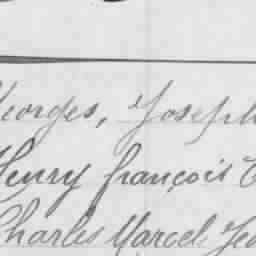 Georges, Joseph
Henry françois
Charles Marcel